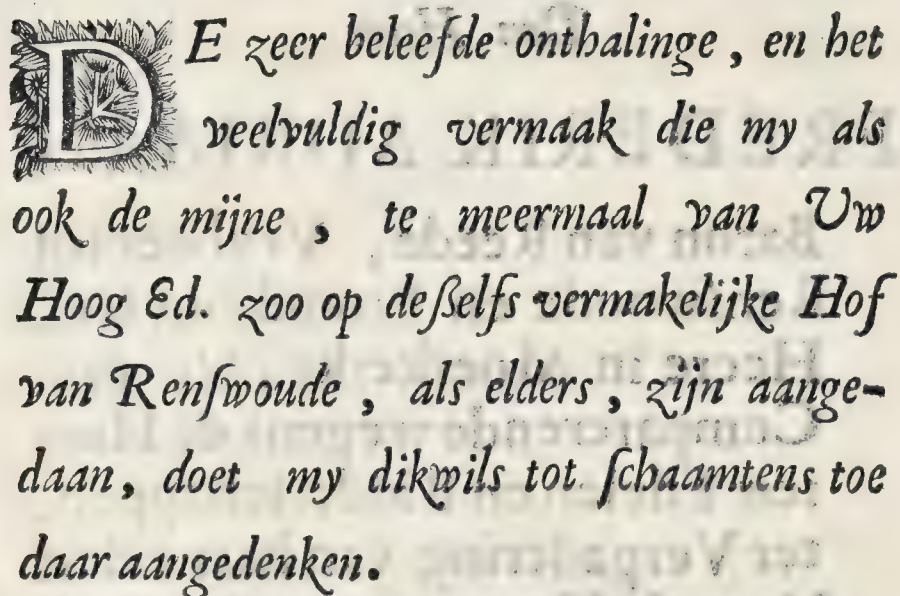 DE zeer beleefde onthalinge, en het
veelvuldig vermaak die my als
ook de mijne, te meermaal van Uw
Hoog Ed. zoo op deßelfs vermakelijke Hof
van Renſwoude, als elders, zijn aange-
daan, doet my dikwils tot ſchaamtens toe
daar aangedenken.